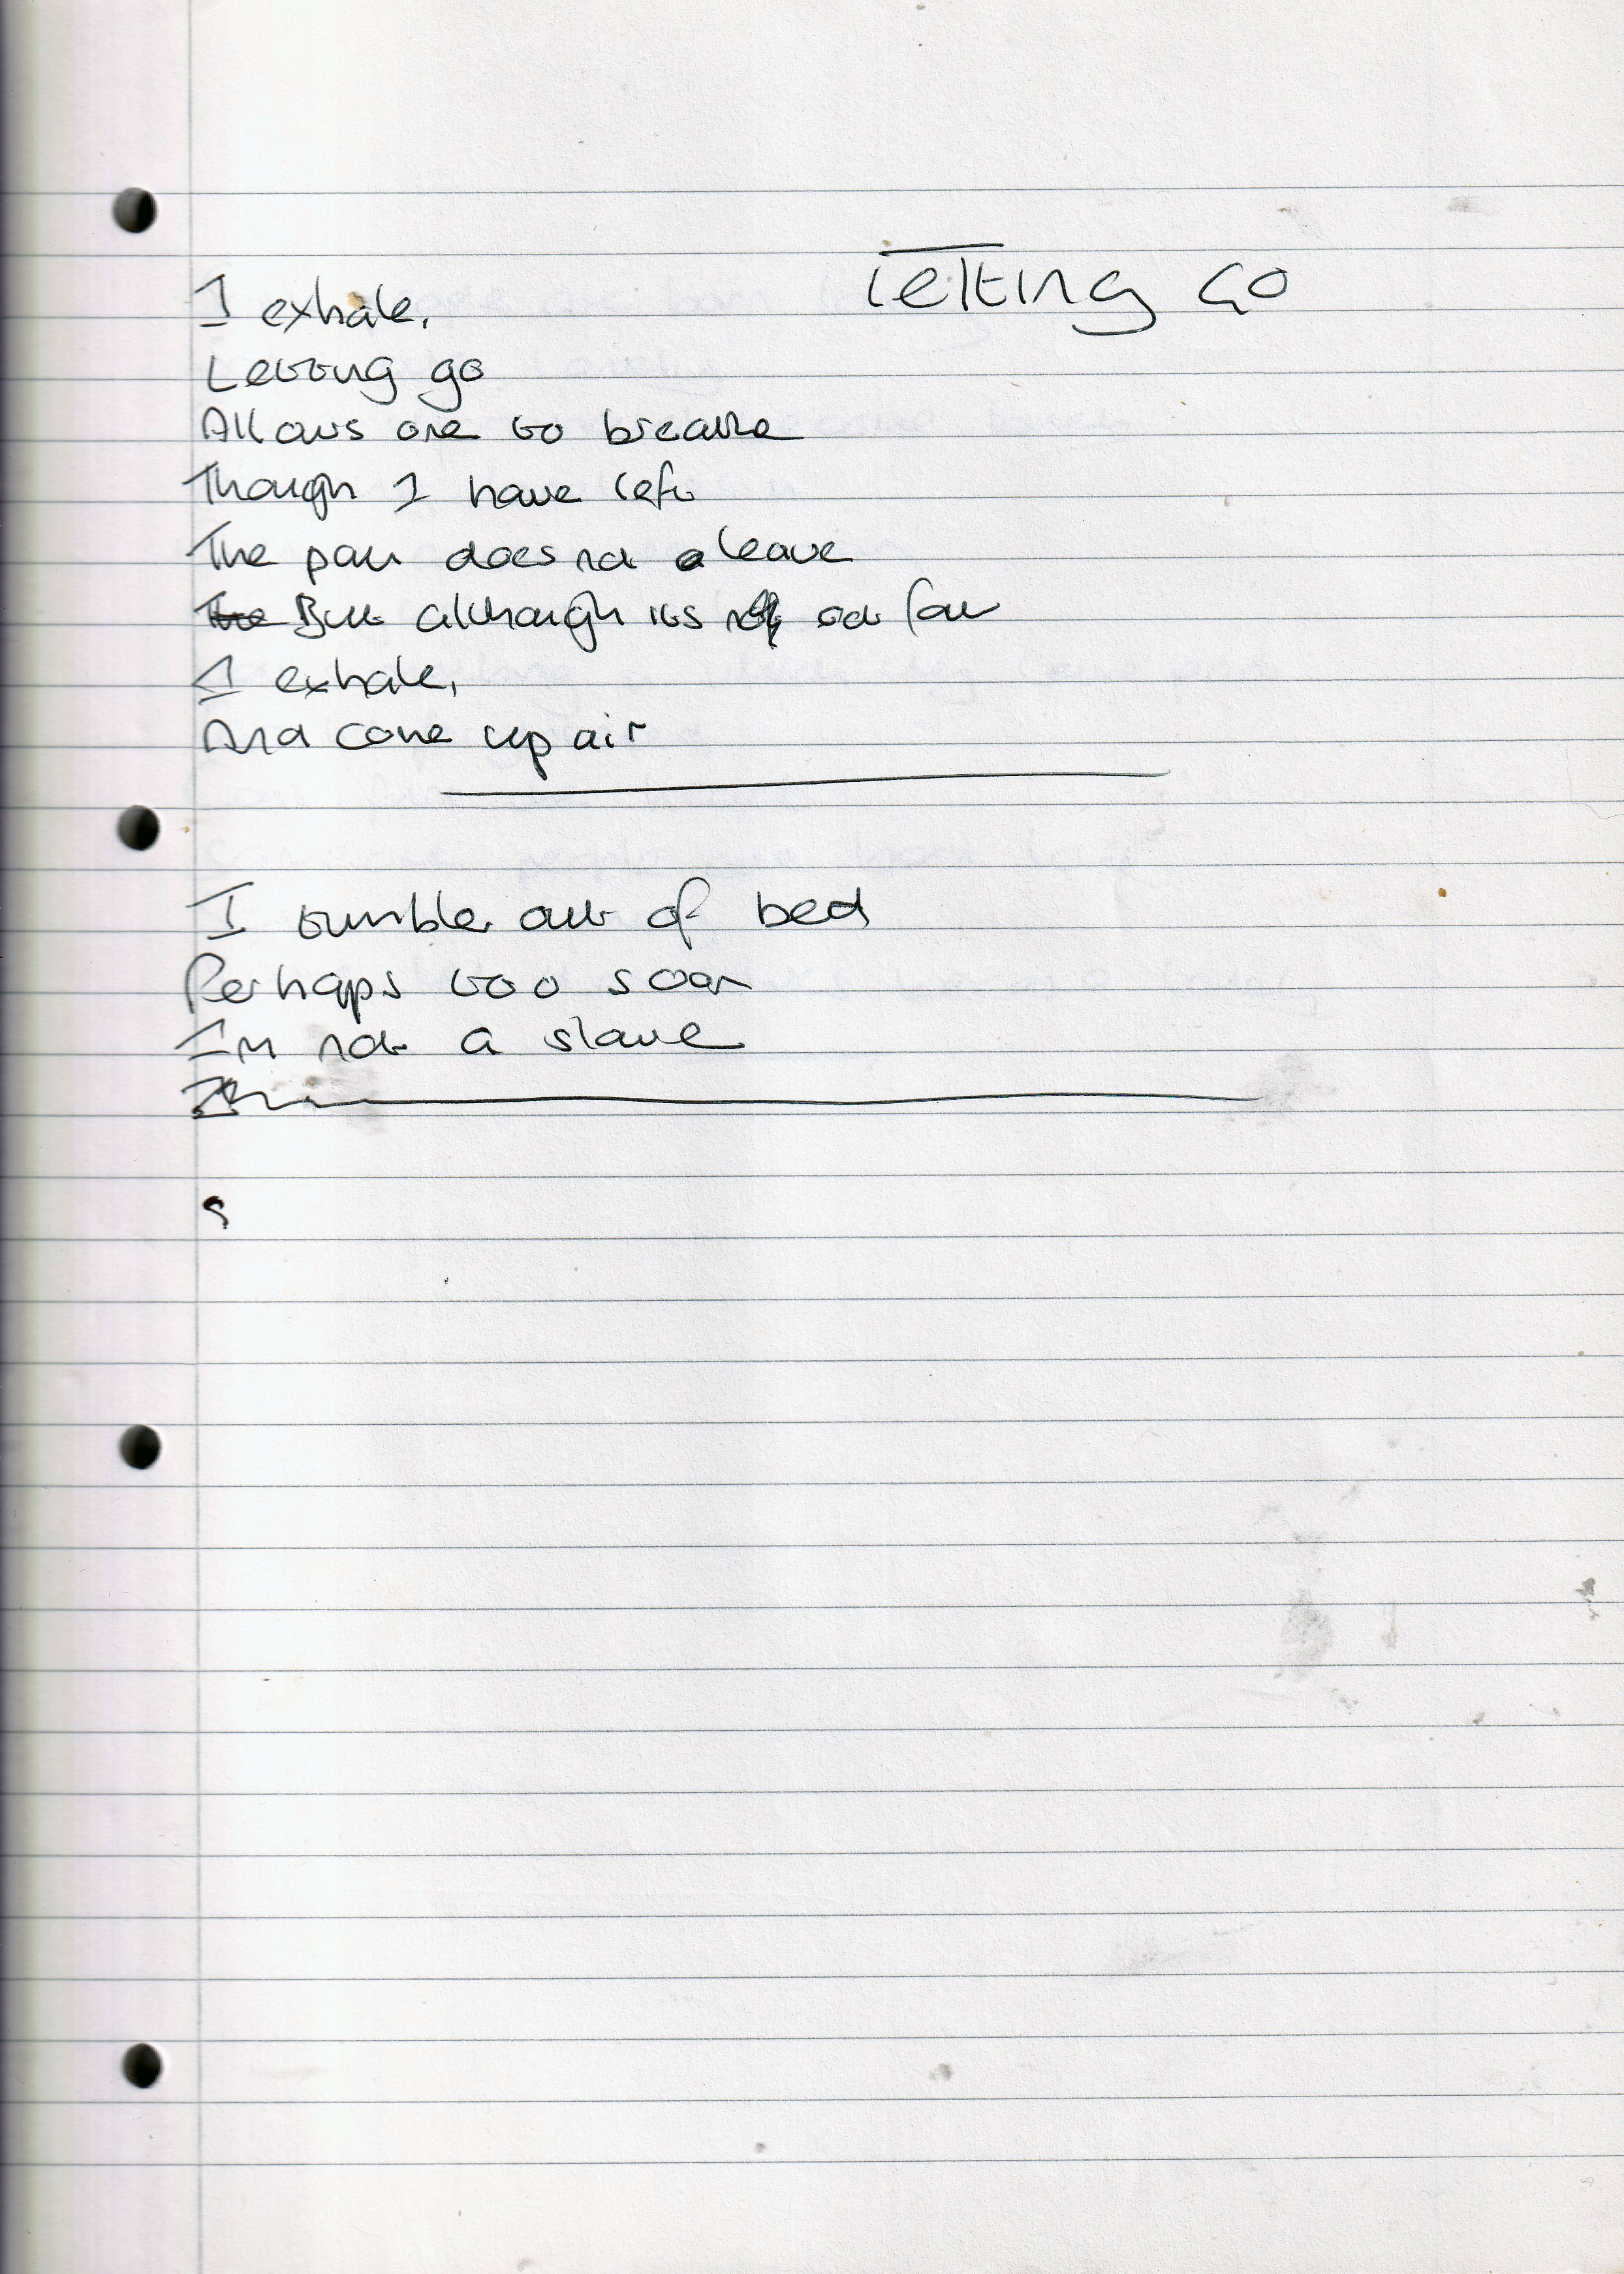 Letting Go
I exhale,
Letting go
Allows one to breathe
Though I have left
The pain does not leave
But although its not
I exhale,
And come up air
I tumble out of bed
Perhaps too soon
I'm not a slave